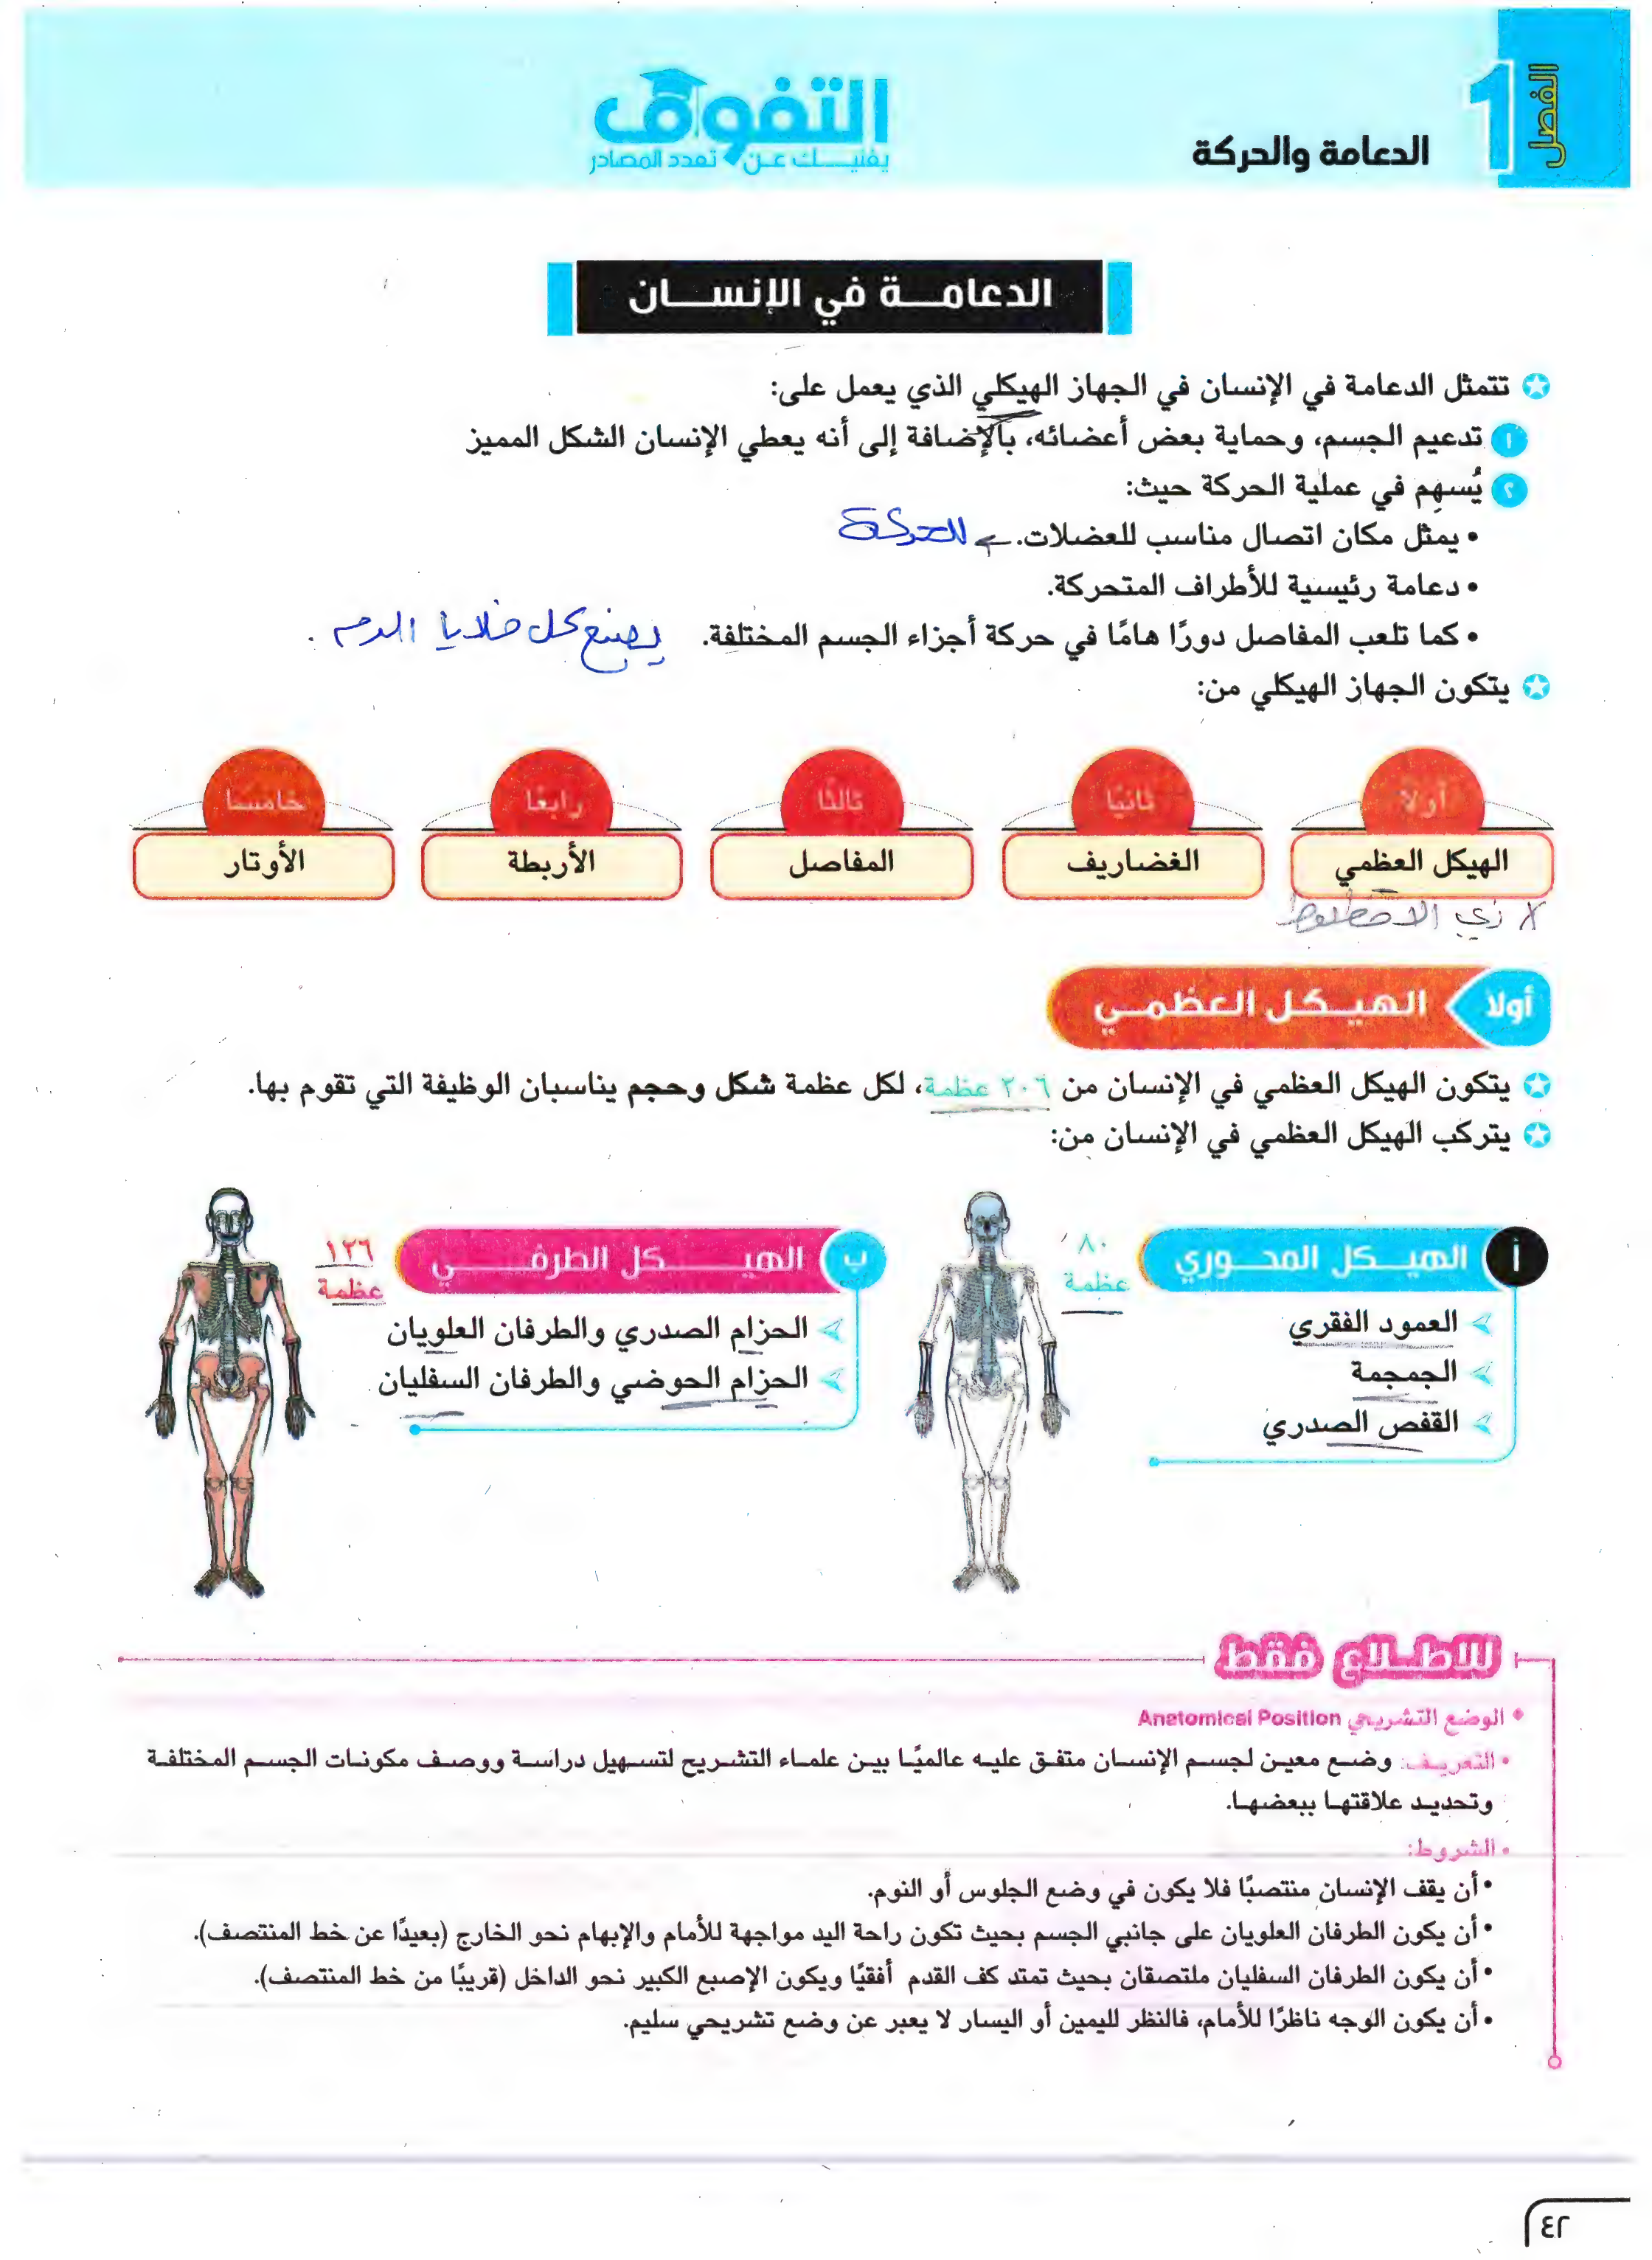 الفصل
1
الدعامة والحركة
التفوق
يغنيك عن تعدد المصادر
الدعامة في الإنسان
تتمثل الدعامة في الإنسان في الجهاز الهيكلي الذي يعمل على:
١ تدعيم الجسم، وحماية بعض أعضائه، بالإضافة إلى أنه يعطي الإنسان الشكل المميز
٢ يُسهِم في عملية الحركة حيث:
• يمثل مكان اتصال مناسب للعضلات. للحركة
• دعامة رئيسية للأطراف المتحركة.
• كما تلعب المفاصل دورًا هامًا في حركة أجزاء الجسم المختلفة. يصنع كل خلايا الدم.
يتكون الجهاز الهيكلي من:
أولًا ثانيًا ثالثًا رابعًا خامسًا
الهيكل العظمي الغضاريف المفاصل الأربطة الأوتار
زي
أولا الهيكل العظمي
يتكون الهيكل العظمي في الإنسان من ٢٠٦ عظمة، لكل عظمة شكل وحجم يناسبان الوظيفة التي تقوم بها.
يتركب الهيكل العظمي في الإنسان من:
أ الهيكل المحوري
٨٠ عظمة
العمود الفقري
الجمجمة
القفص الصدري
ب الهيكل الطرفي
١٢٦ عظمة
الحزام الصدري والطرفان العلويان
الحزام الحوضي والطرفان السفليان
للاطلاع فقط
• الوضع التشريحي Anatomical Position
• التعريف: وضع معين لجسم الإنسان متفق عليه عالميًا بين علماء التشريح لتسهيل دراسة ووصف مكونات الجسم المختلفة
وتحديد علاقتها ببعضها.
• الشروط:
• أن يقف الإنسان منتصبًا فلا يكون في وضع الجلوس أو النوم.
• أن يكون الطرفان العلويان على جانبي الجسم بحيث تكون راحة اليد مواجهة للأمام والإبهام نحو الخارج (بعيدًا عن خط المنتصف).
• أن يكون الطرفان السفليان ملتصقان بحيث تمتد كف القدم أفقيًا ويكون الإصبع الكبير نحو الداخل (قريبًا من خط المنتصف).
• أن يكون الوجه ناظرًا للأمام، فالنظر لليمين أو اليسار لا يعبر عن وضع تشريحي سليم.
٤٢